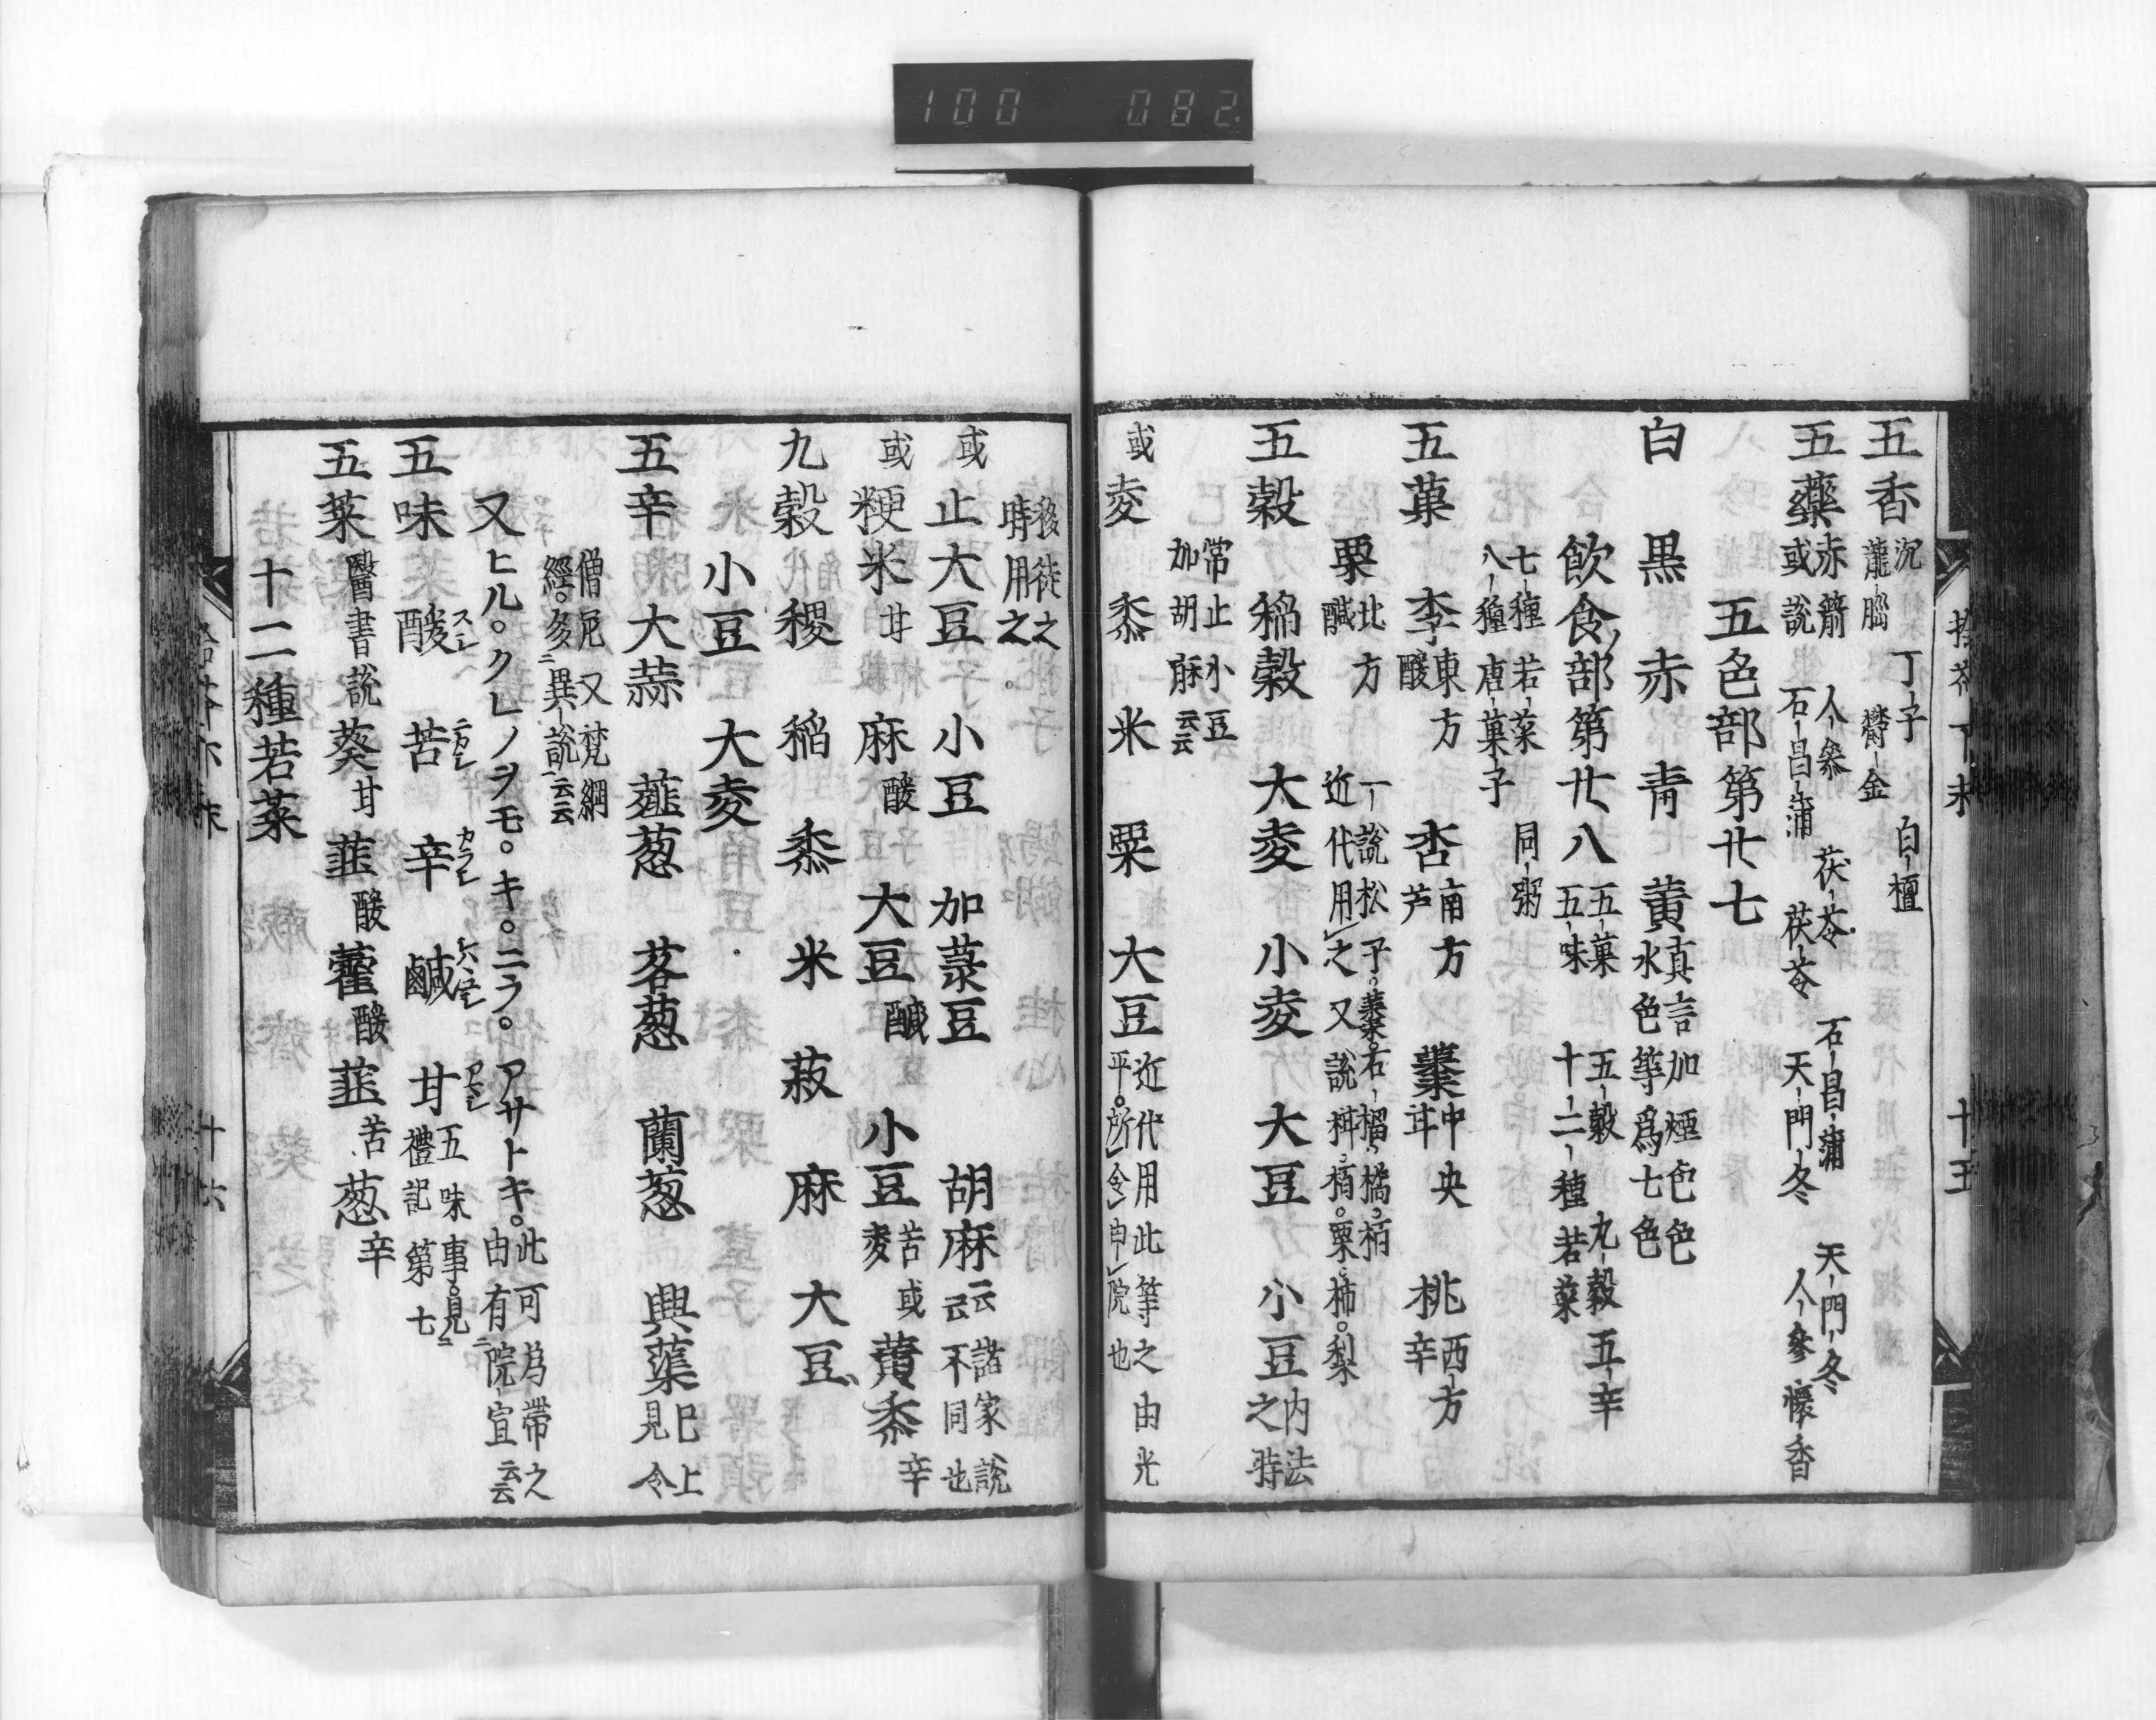 100 082
五香 沉 丁子 白檀
龍腦 欝金
五藥 赤箭 人參 茯苓 石昌蒲 天門冬
或說 石昌蒲 茯苓 天門冬 人參 懷香
五色部第廿七
白 黒 赤 青 黄 真言加煙色色
水色等爲七色
飲食部第廿八 五菓 五穀 九穀 五辛
五味 十二種若菜
七種若菜 同粥
八種唐菓子
五菓 李 東方 酸 杏 南方 苦 棗 中央 甘 桃 西方 辛
栗 北方 鹹 一說松子。棗。右榴。橘。栢
近代用之 又說 栢。栗。柿。梨
五穀 稻穀 大麦 小麦 大豆 小豆 内法
之時
常止小豆
加胡麻云云
或 麦 黍 米 粟 大豆 近代用此等之由光
平。所令申院也
後徒之
時用之
或 止大豆 小豆 加菉豆 胡麻 云云諸家說
不同也
或 粳米 甘 麻 酸 大豆 鹹 小豆 苦
麦 或 黄黍 辛
九穀 稷 稲 黍 米 菽 麻 大豆
小豆 大麦
五辛 大蒜 薤葱 茖葱 蘭葱 興蕖 已上
見令
僧尼 又梵網
經。多異說云云
又ヒル。クレノヲモ。キ。ニラ。アサトキ。此可為帶之
由有院宣云云
五味 酸 スシ 苦 ニガシ 辛 カラシ 鹹 甘 アマシ 五味事。見
禮記第七
五菜 醫書說 葵 甘 韮 酸 藿 酸 韮 苦 葱 辛
十二種若菜
十五
十六